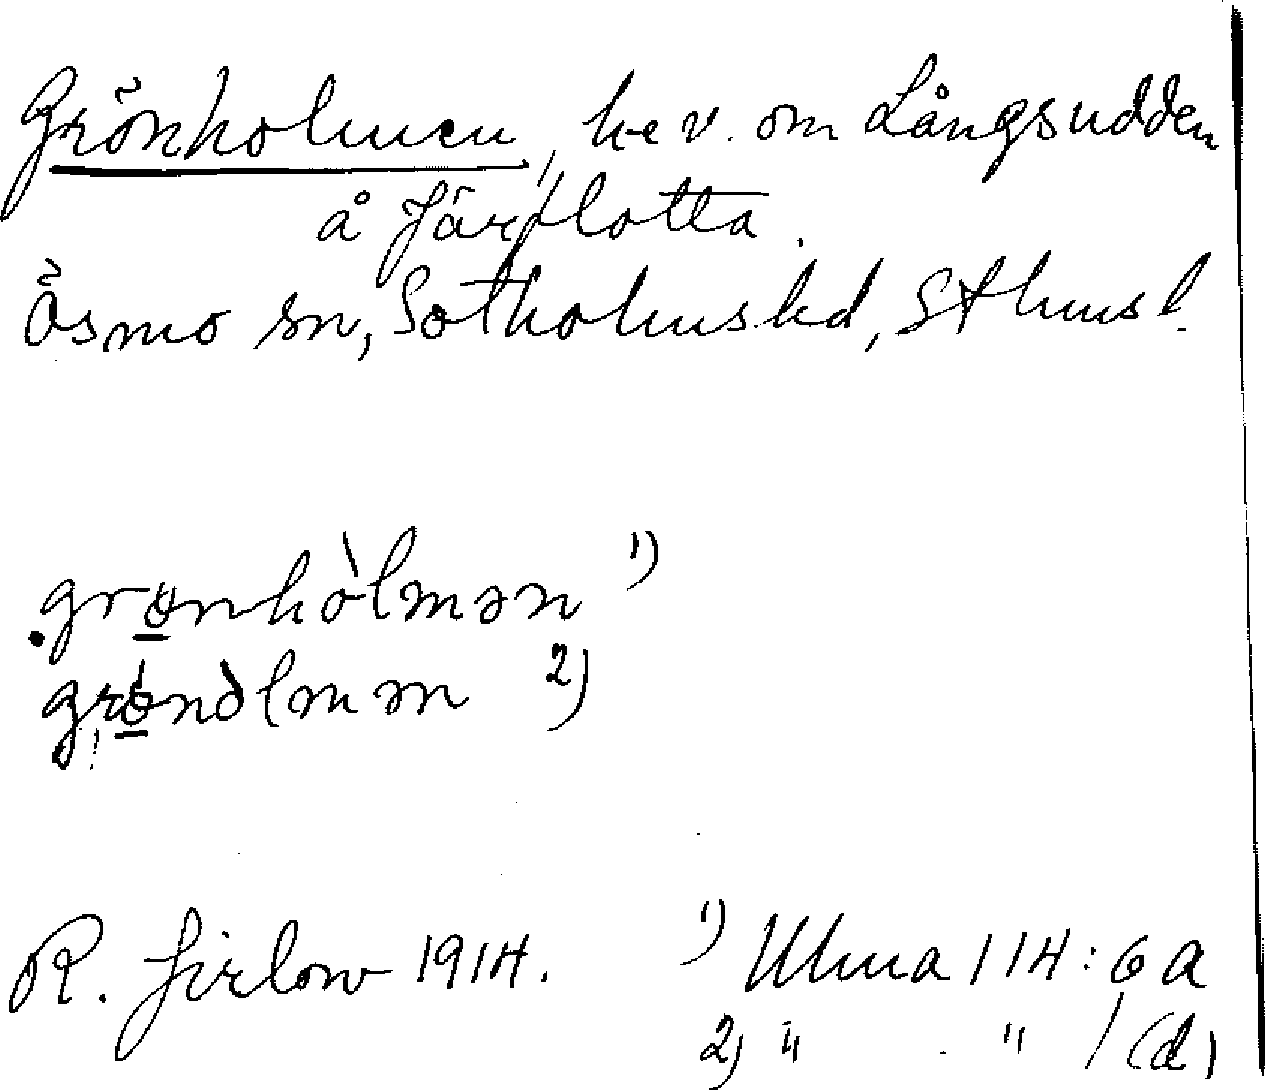 Grönholmen, bev. om Långsudden
å Järflotta.
Ösmo sn, Sotholms hd, Sthms l.
.grønhòlmən 1)
grønòlmən 2)
R. Jirlow 1914. 1) Ulma 114:6a
2) " " / (d)